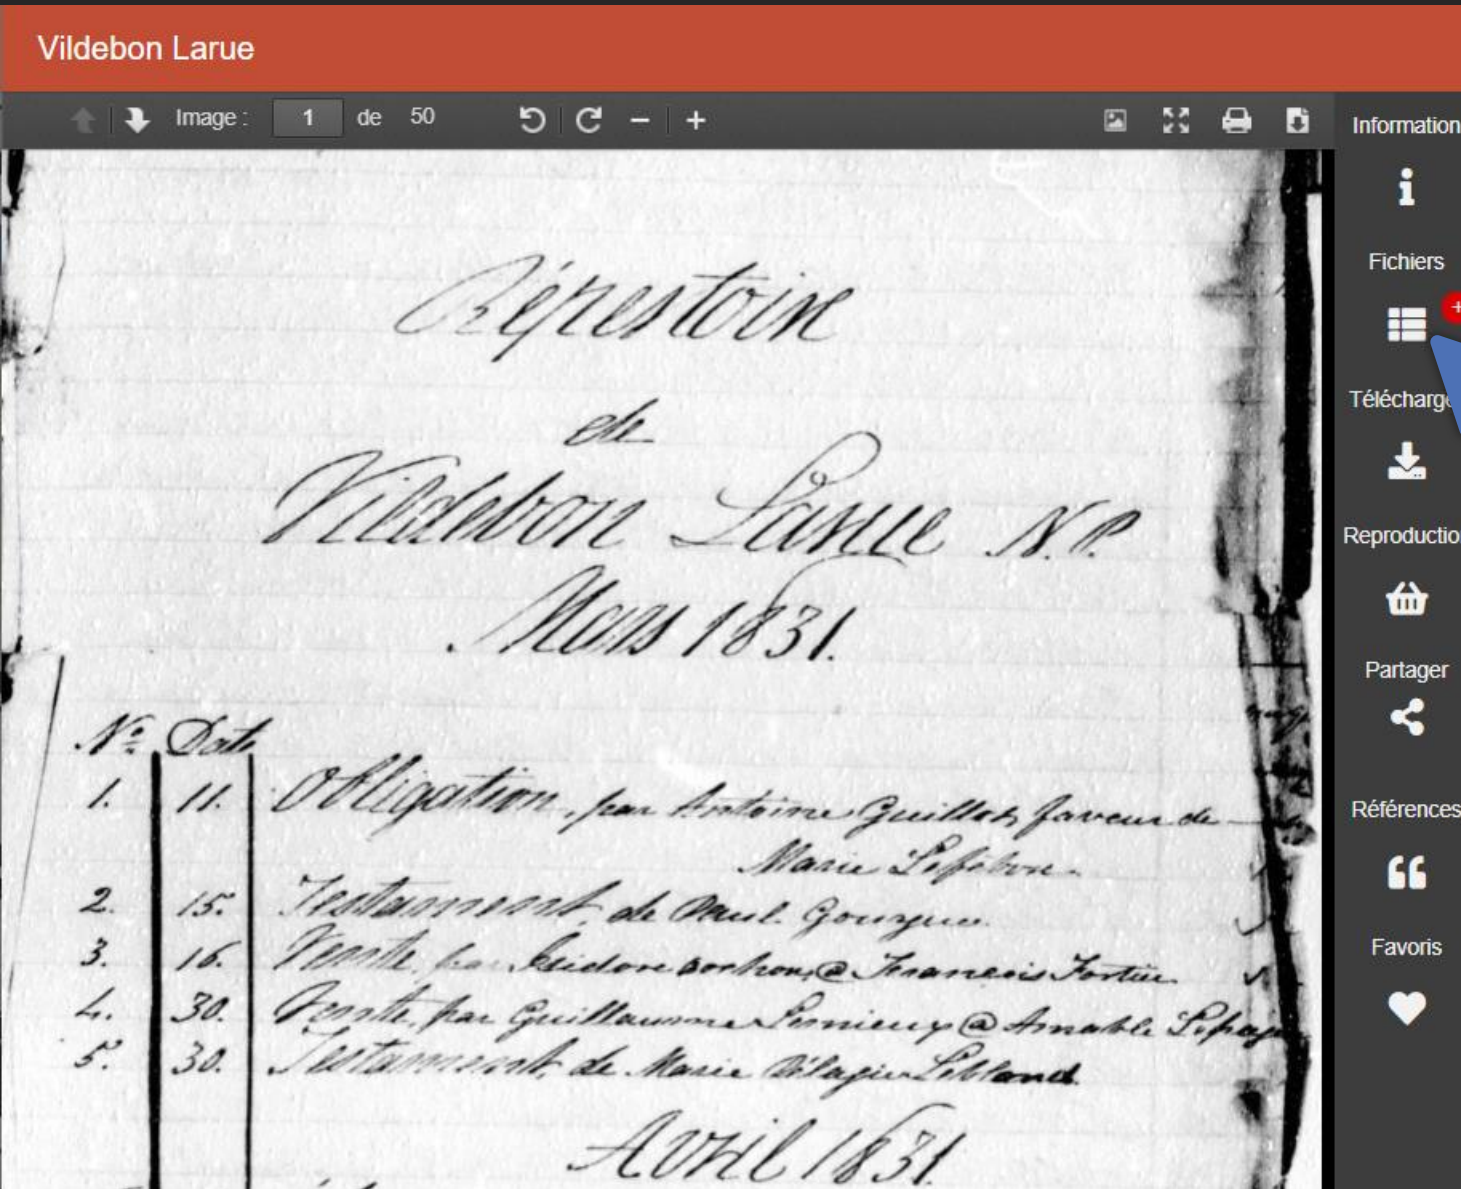 Vildebon Larue
Image : 1 de 50
Information
Fichiers
+
Télécharge
Reproductio
Partager
Références
Favoris
Répertoire
de
Vildebon Larue N.P.
Mars 1831.
No Date
1. 11. Obligation, par Antoine Guillot, faveur de
Marie Lefebvre
2. 15. Testament, de Paul
3. 16. Vente, par Isidore @ Francois Fortier
4. 30. Vente, par Guillaume Lemieux @ Amable Lepage
5. 30. Testament, de Marie Pélagie Leblond
Avril 1831